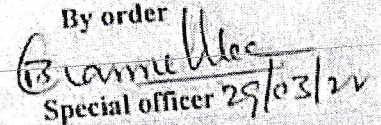 By order
Special officer 29/03/22